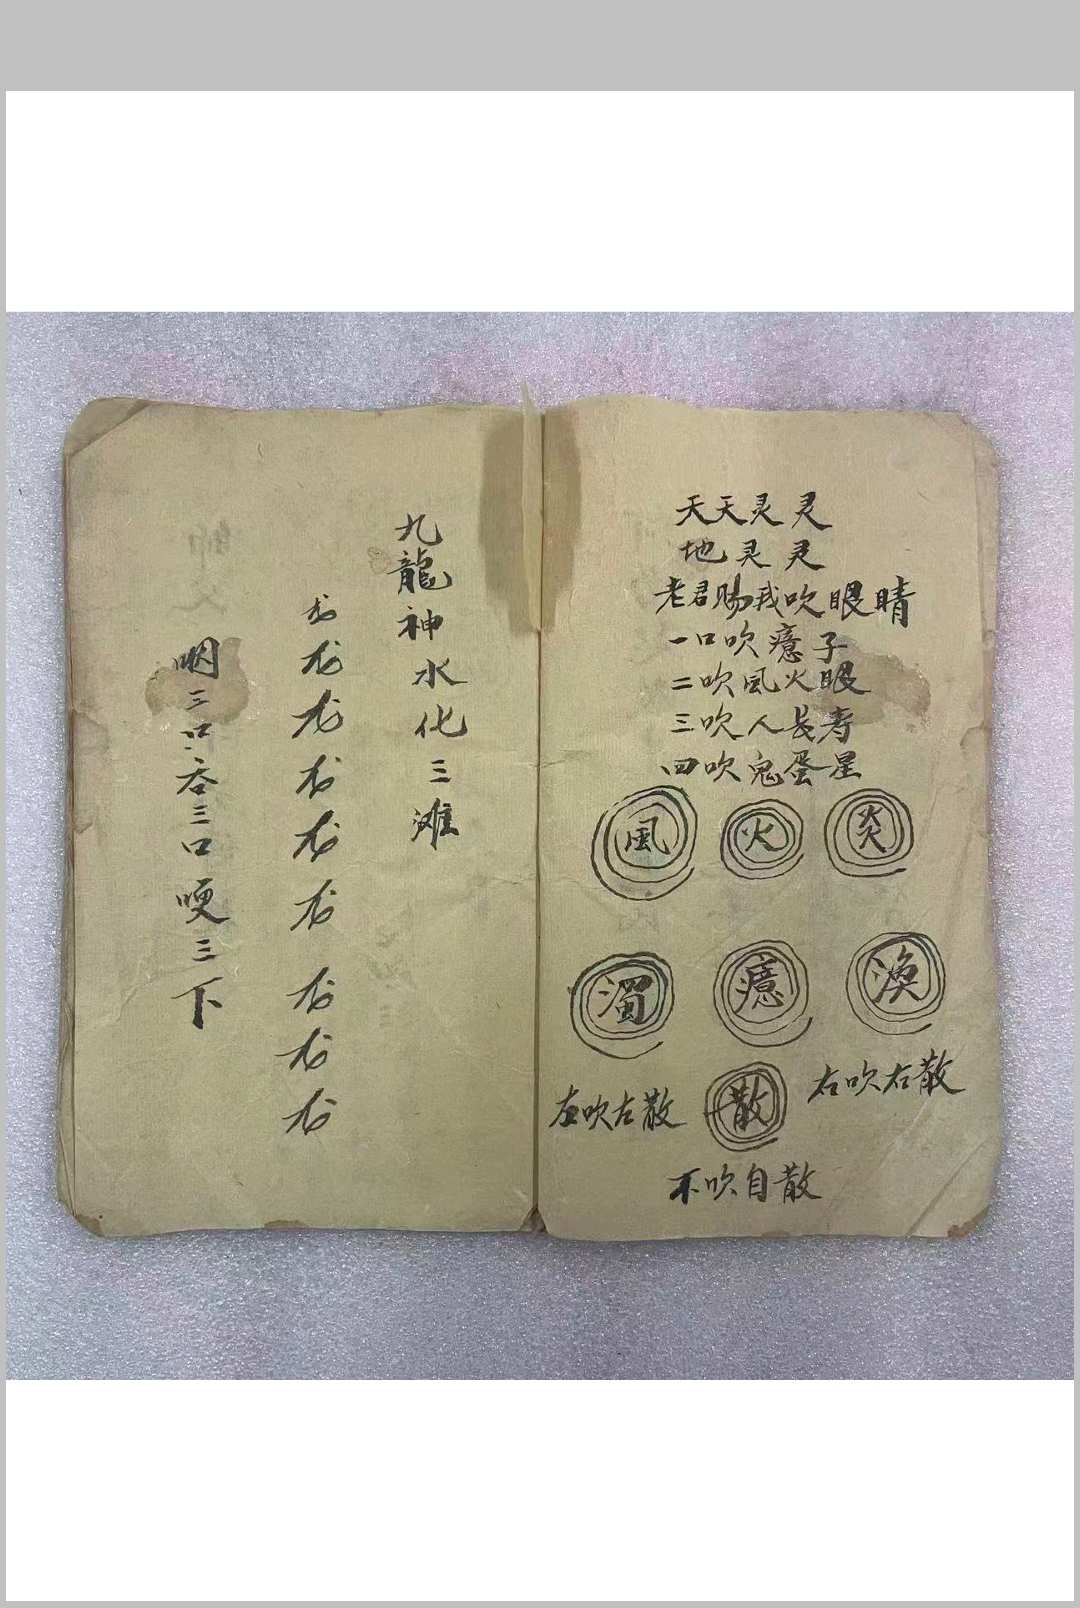 天天灵灵
地灵灵
老君賜我吹眼睛
一口吹癔子
二吹風火眼
三吹人長寿
四吹鬼蛋星
風 火 炎
濁 癔 渙
左吹左散 散 右吹右散
不吹自散
九龍神水化三滩
龙龙龙龙龙龙龙龙龙
咽三口吞三口哽三下